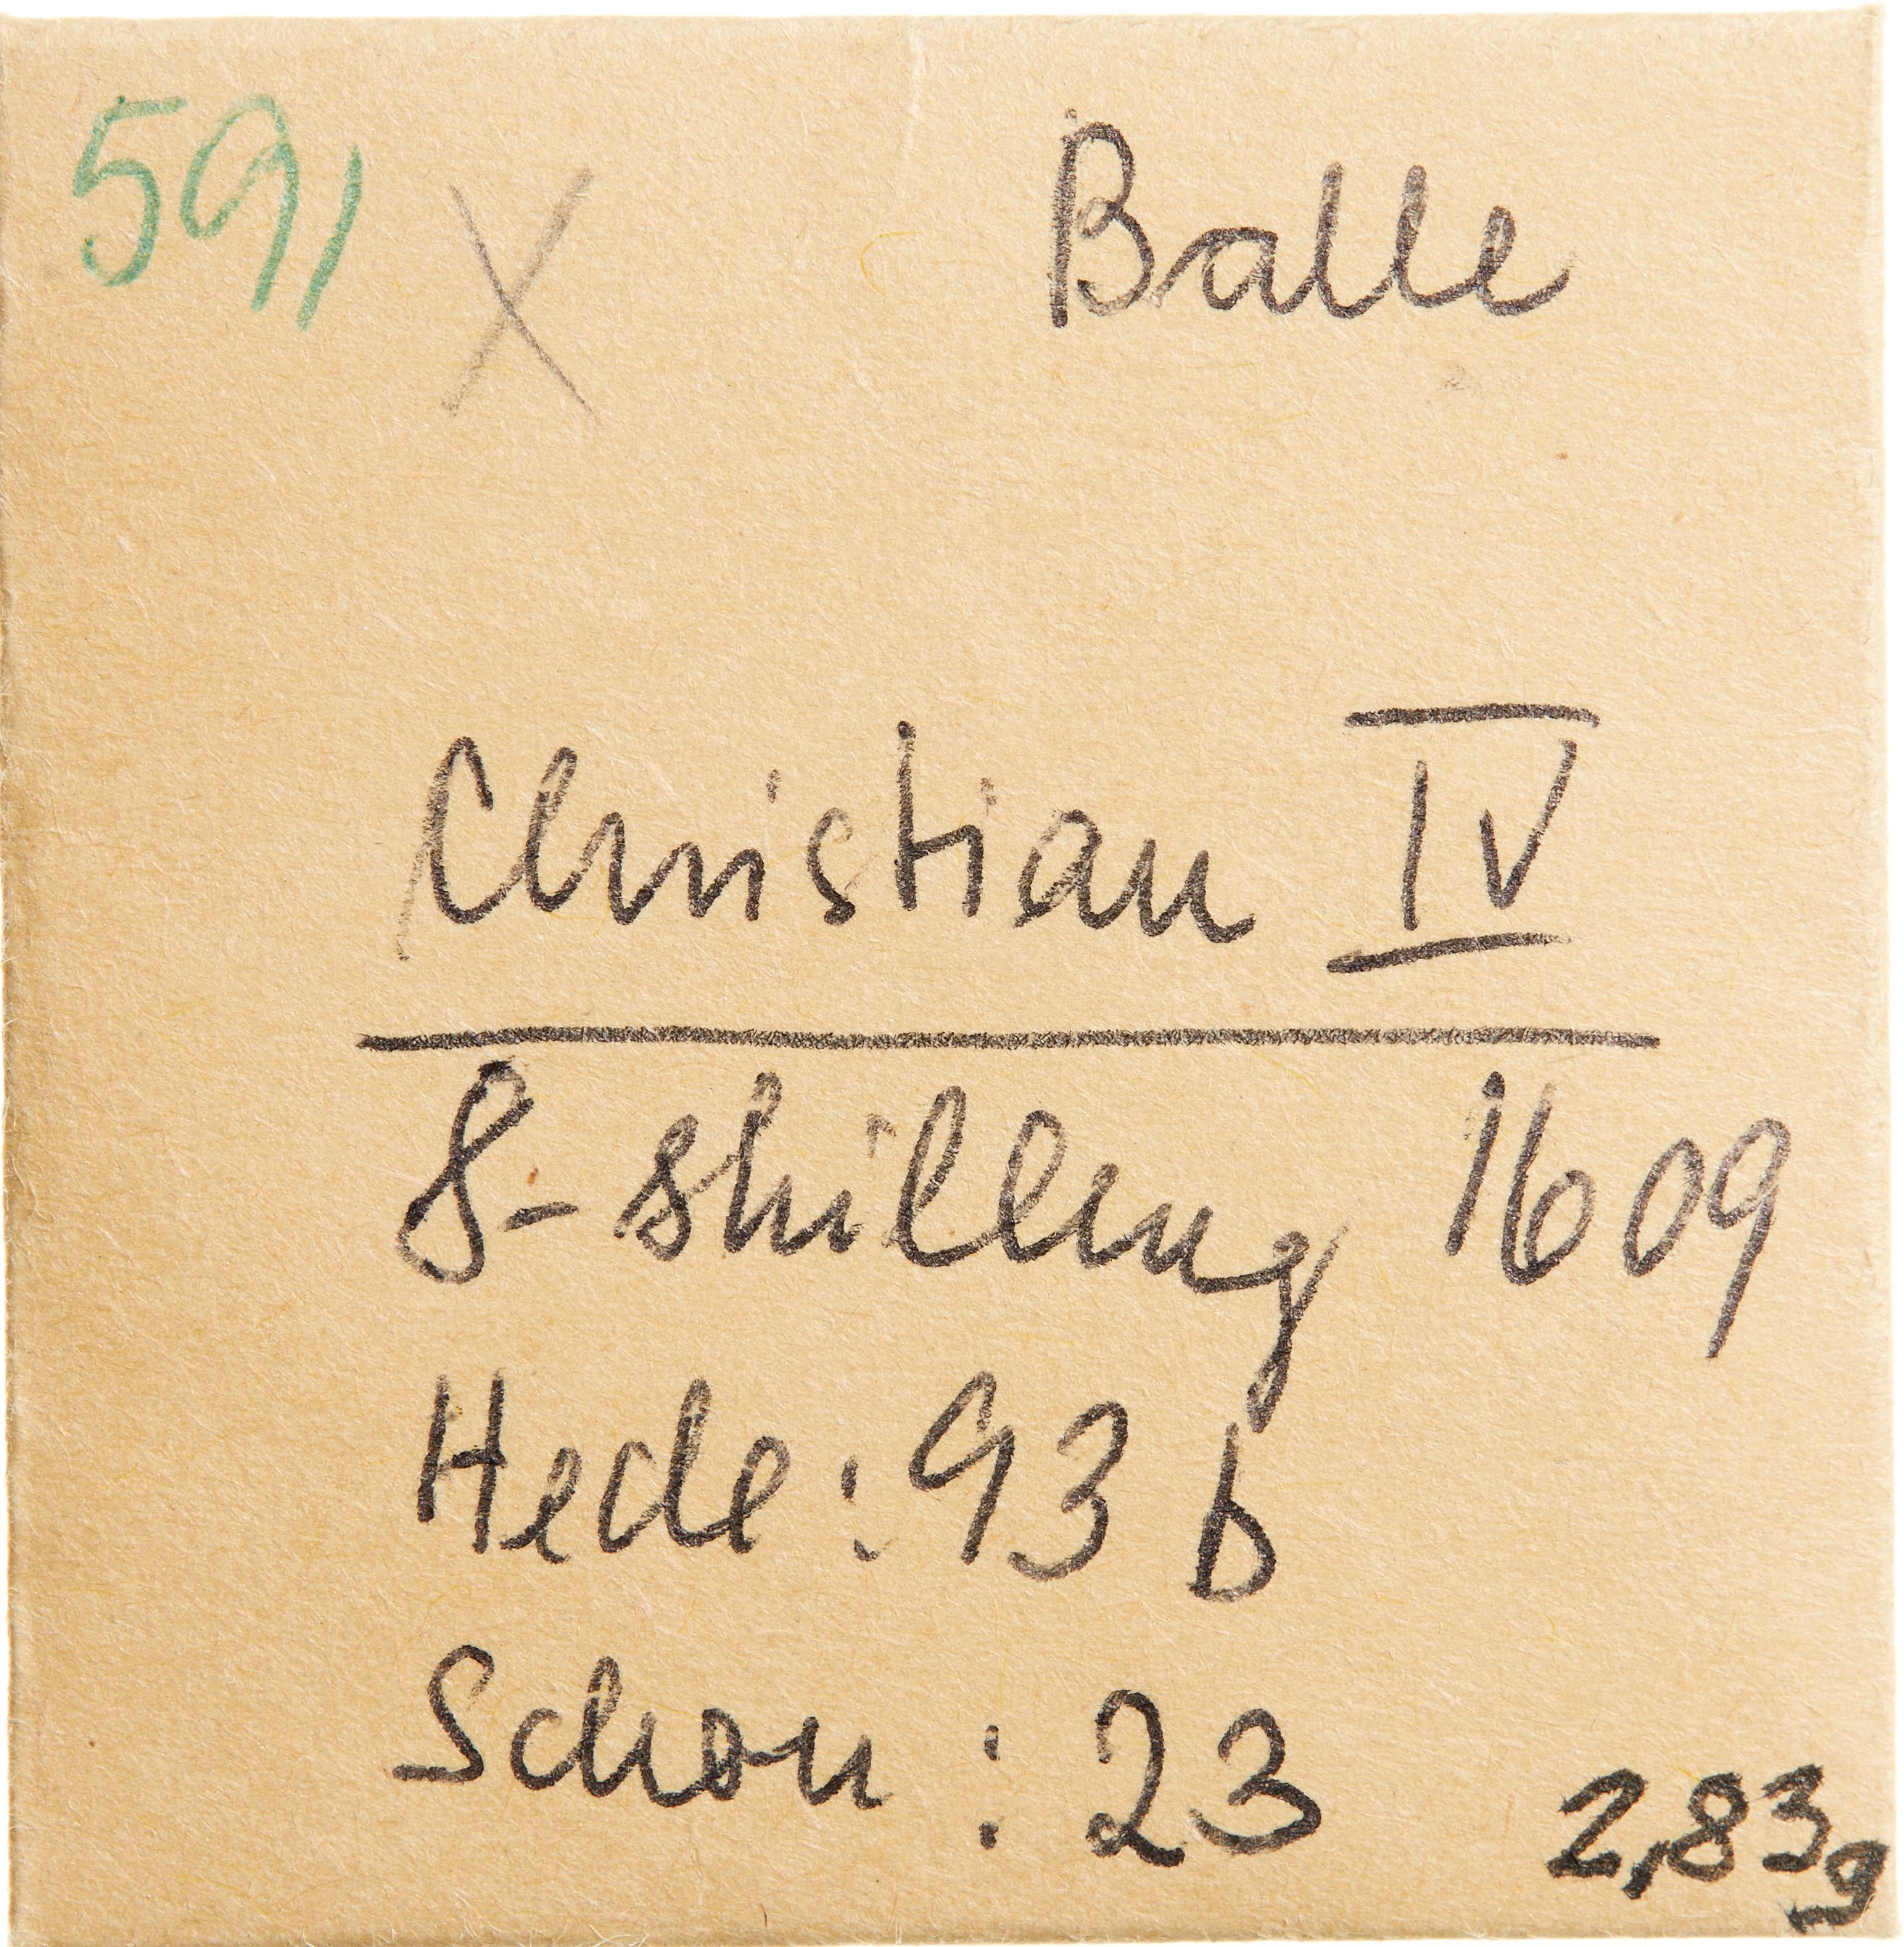 591 X Balle
Christian IV
8-shilling 1609
Hede: 93 b
Schou: 23
2,83g